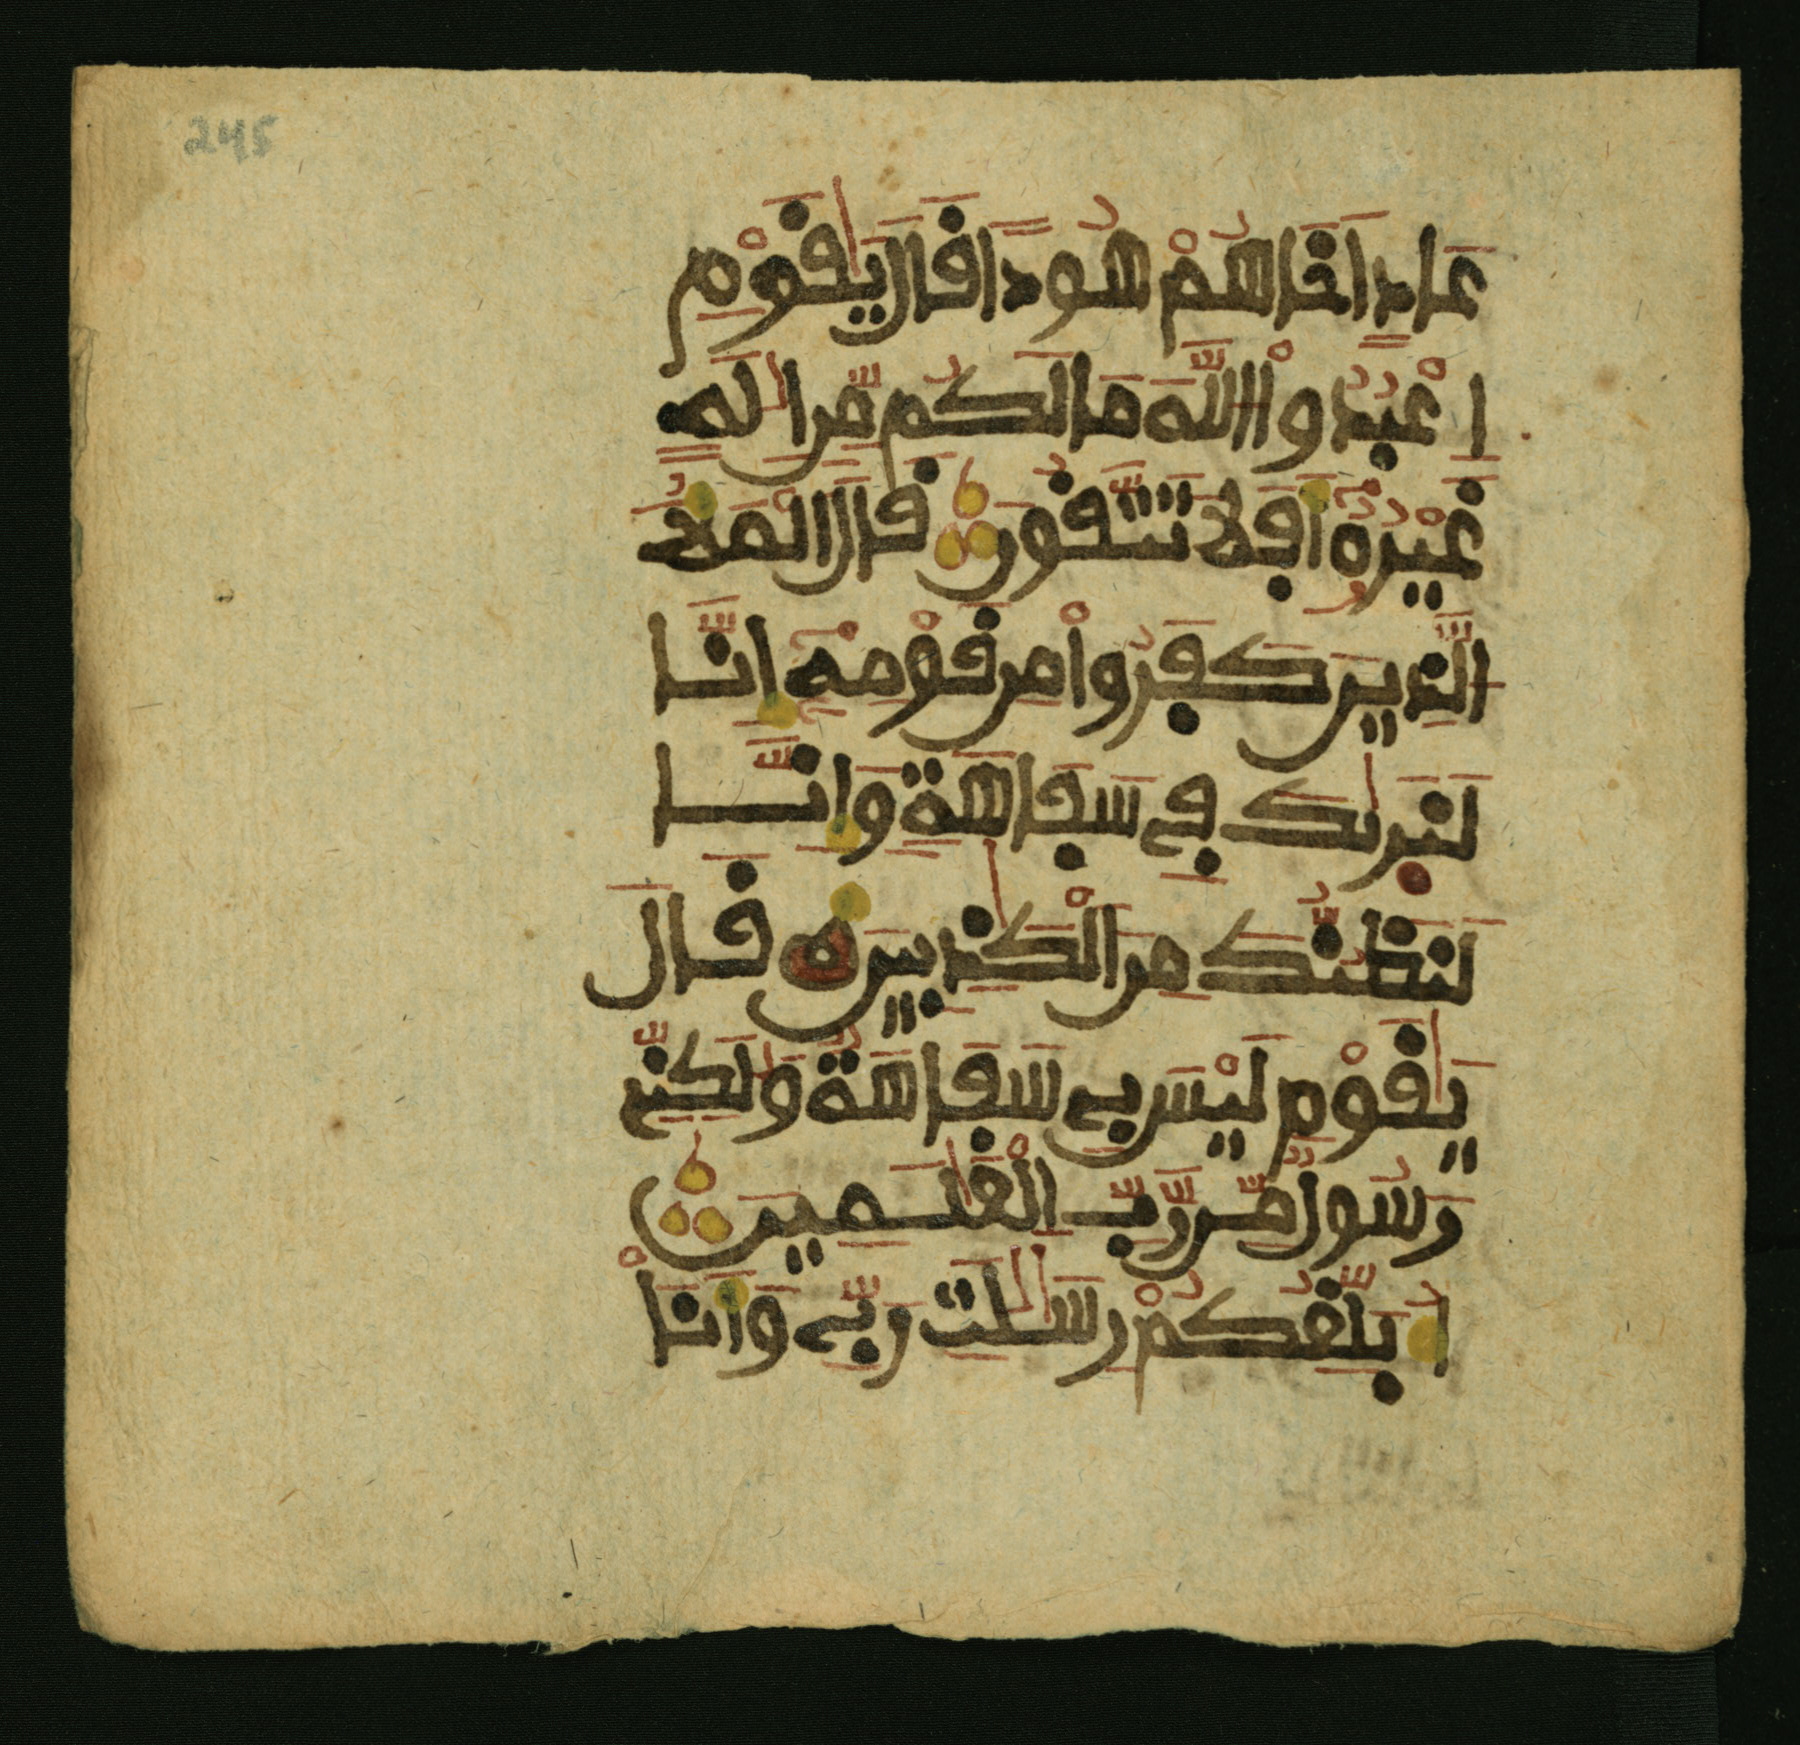 245
عَادٍ اَخَاهُمْ هُودًا قَالَ يَٰقَوْمِ
اِ۟عْبُدُواْ اُ۬للَّهَ مَا لَكُم مِّنِ اِلَٰهٍ
غَيْرُهُۥٓ أَفَلَا تَتَّقُونَ قَالَ اَ۬لْمَلَأُ
اُ۬لذِينَ كَفَرُواْ مِن قَوْمِهِۦٓ إِنَّا
لَنَر۪ىٰكَ فِے سَفَاهَةٍ وَإِنَّا
لَنَظُنُّكَ مِنَ اَ۬لْكَٰذِبِينَ قَالَ
يَٰقَوْمِ لَيْسَ بِے سَفَاهَةٌ وَلَٰكِنِّے
رَسُولٌ مِّن رَّبِّ اِ۬لْعَٰلَمِينَ
أُبَلِّغُكُمْ رِسَٰلَٰتِ رَبِّے وَأَنَا